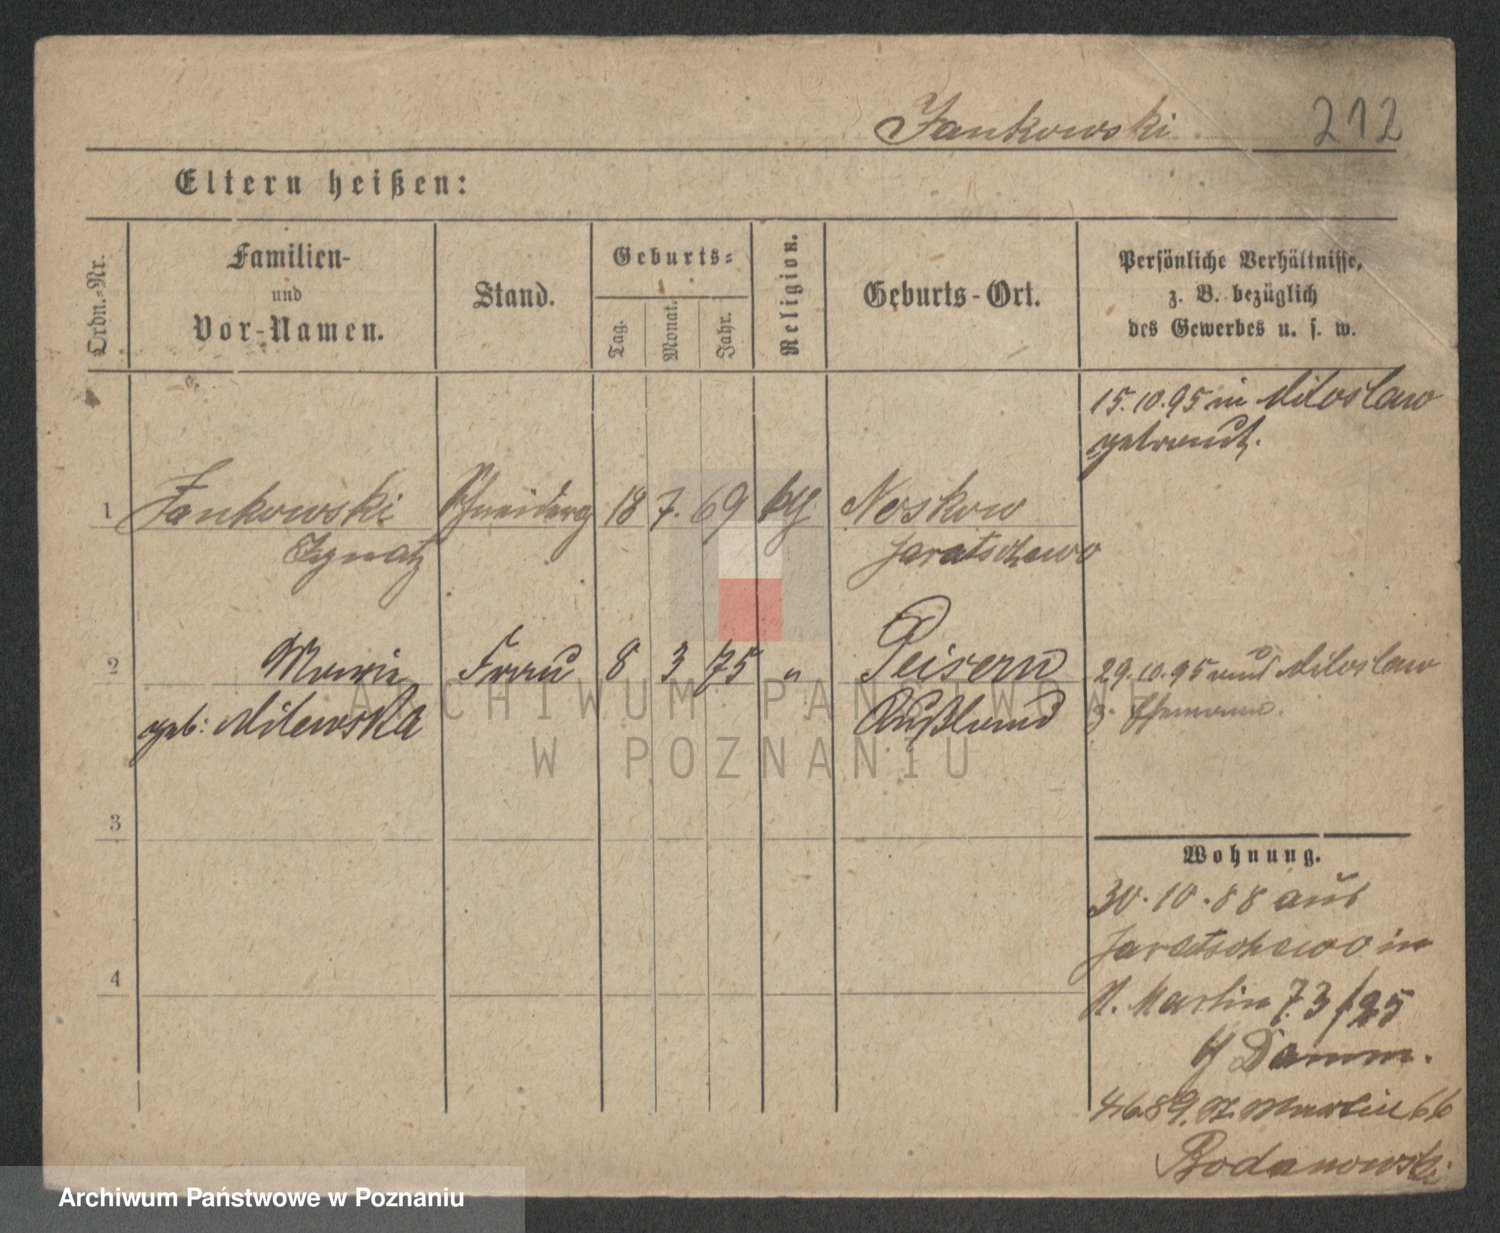 Jankowski 212
Eltern heißen:
Ordn.-Nr.
Familien-
und
Vor-Namen.
Stand.
Geburts-
Tag.
Monat.
Jahr.
Religion.
Geburts-Ort.
Persönliche Verhältnisse,
z. B. bezüglich
des Gewerbes u. s. w.
15.10.95 in Miloslaw
getraut.
1 Jankowski 18 7. 69 kth Noskow
Ignatz Jaratschewo
2 Marie Frau 8 3 75 " Peisern 29.10.95 aus Miloslaw
geb: Milewska Rußland z. Ehemann.
ARCHIWUM PAŃSTWOWE
W POZNANIU
3
Wohnung.
30.10.88 aus
Jaratschewo in
4
St. Martin 73/25
Damm.
4.6.89. St. Martin 66
Bodanowski
Archiwum Państwowe w Poznaniu